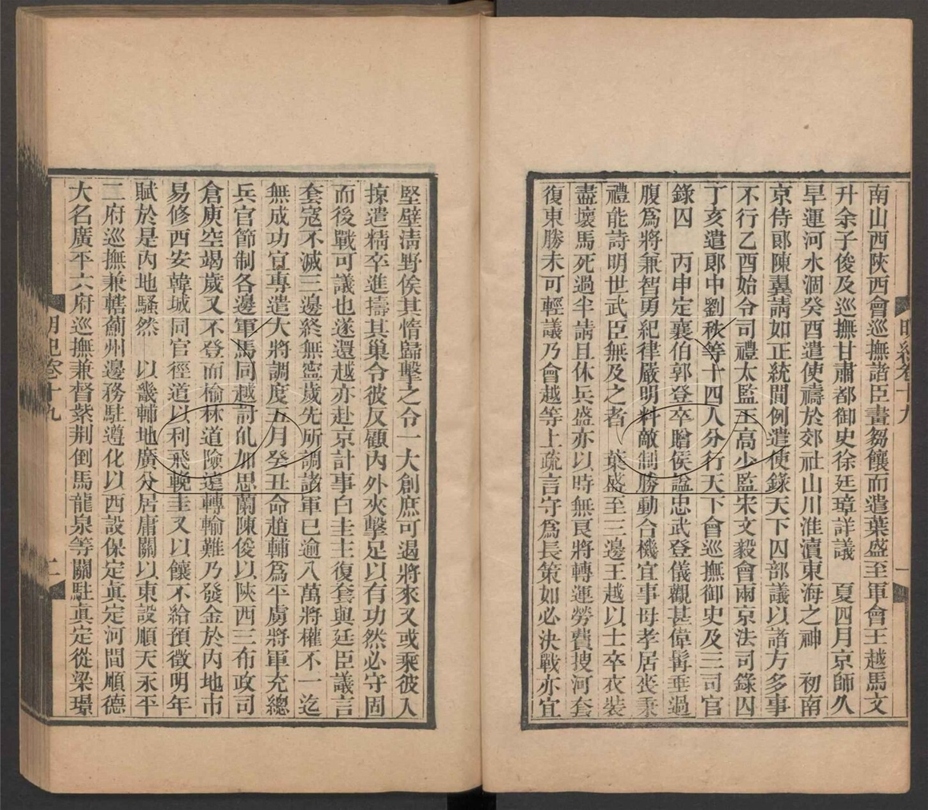 南山西陝西會巡撫諸臣畫芻饟而遣葉盛至軍會王越馬文
升余子俊及巡撫甘肅都御史徐廷璋詳議　夏四月京師久
旱運河水涸癸酉遣使禱於郊社山川淮瀆東海之神　初南
京侍郎陳翼請如正統閒例遣使錄天下囚部議以諸方多事
不行乙酉始令司禮太監王高少監宋文毅會兩京法司錄囚
丁亥遣郎中劉秩等十四人分行天下會巡撫御史及三司官
錄囚　丙申定襄伯郭登卒贈侯謚忠武登儀觀甚偉髯垂過
腹爲將兼智勇紀律嚴明料敵制勝動合機宜事母孝居喪秉
禮能詩明世武臣無及之者　葉盛至三邊王越以士卒衣裝
盡壞馬死過半請且休兵盛亦以時無良將轉運勞費搜河套
復東勝未可輕議乃會越等上疏言守爲長策如必決戰亦宜
明紀卷十九
一
堅壁淸野俟其惰歸擊之令一大創庶可遏將來又或乘彼入
掠遣精卒進擣其巢令彼反顧內外夾擊足以有功然必守固
而後戰可議也遂還越亦赴京計事白圭主復套與廷臣議言
套寇不滅三邊終無寧歲先所調諸軍已逾八萬將權不一迄
無成功宜專遣大將調度五月癸丑命趙輔爲平虜將軍充總
兵官節制各邊軍馬同越討癿加思蘭陳俊以陝西三布政司
倉庾空竭歲又不登而榆林道險遠轉輸難乃發金於內地市
易修西安韓城同官徑道以利飛輓圭又以饟不給預徵明年
賦於是內地騷然　以畿輔地廣分居庸關以東設順天永平
二府巡撫兼轄薊州邊務駐遵化以西設保定眞定河閒順德
大名廣平六府巡撫兼督紫荆倒馬龍泉等關駐眞定從梁璟
明紀卷十九
二